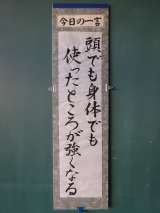 今日の一言
頭でも身体でも
使ったところが強くなる